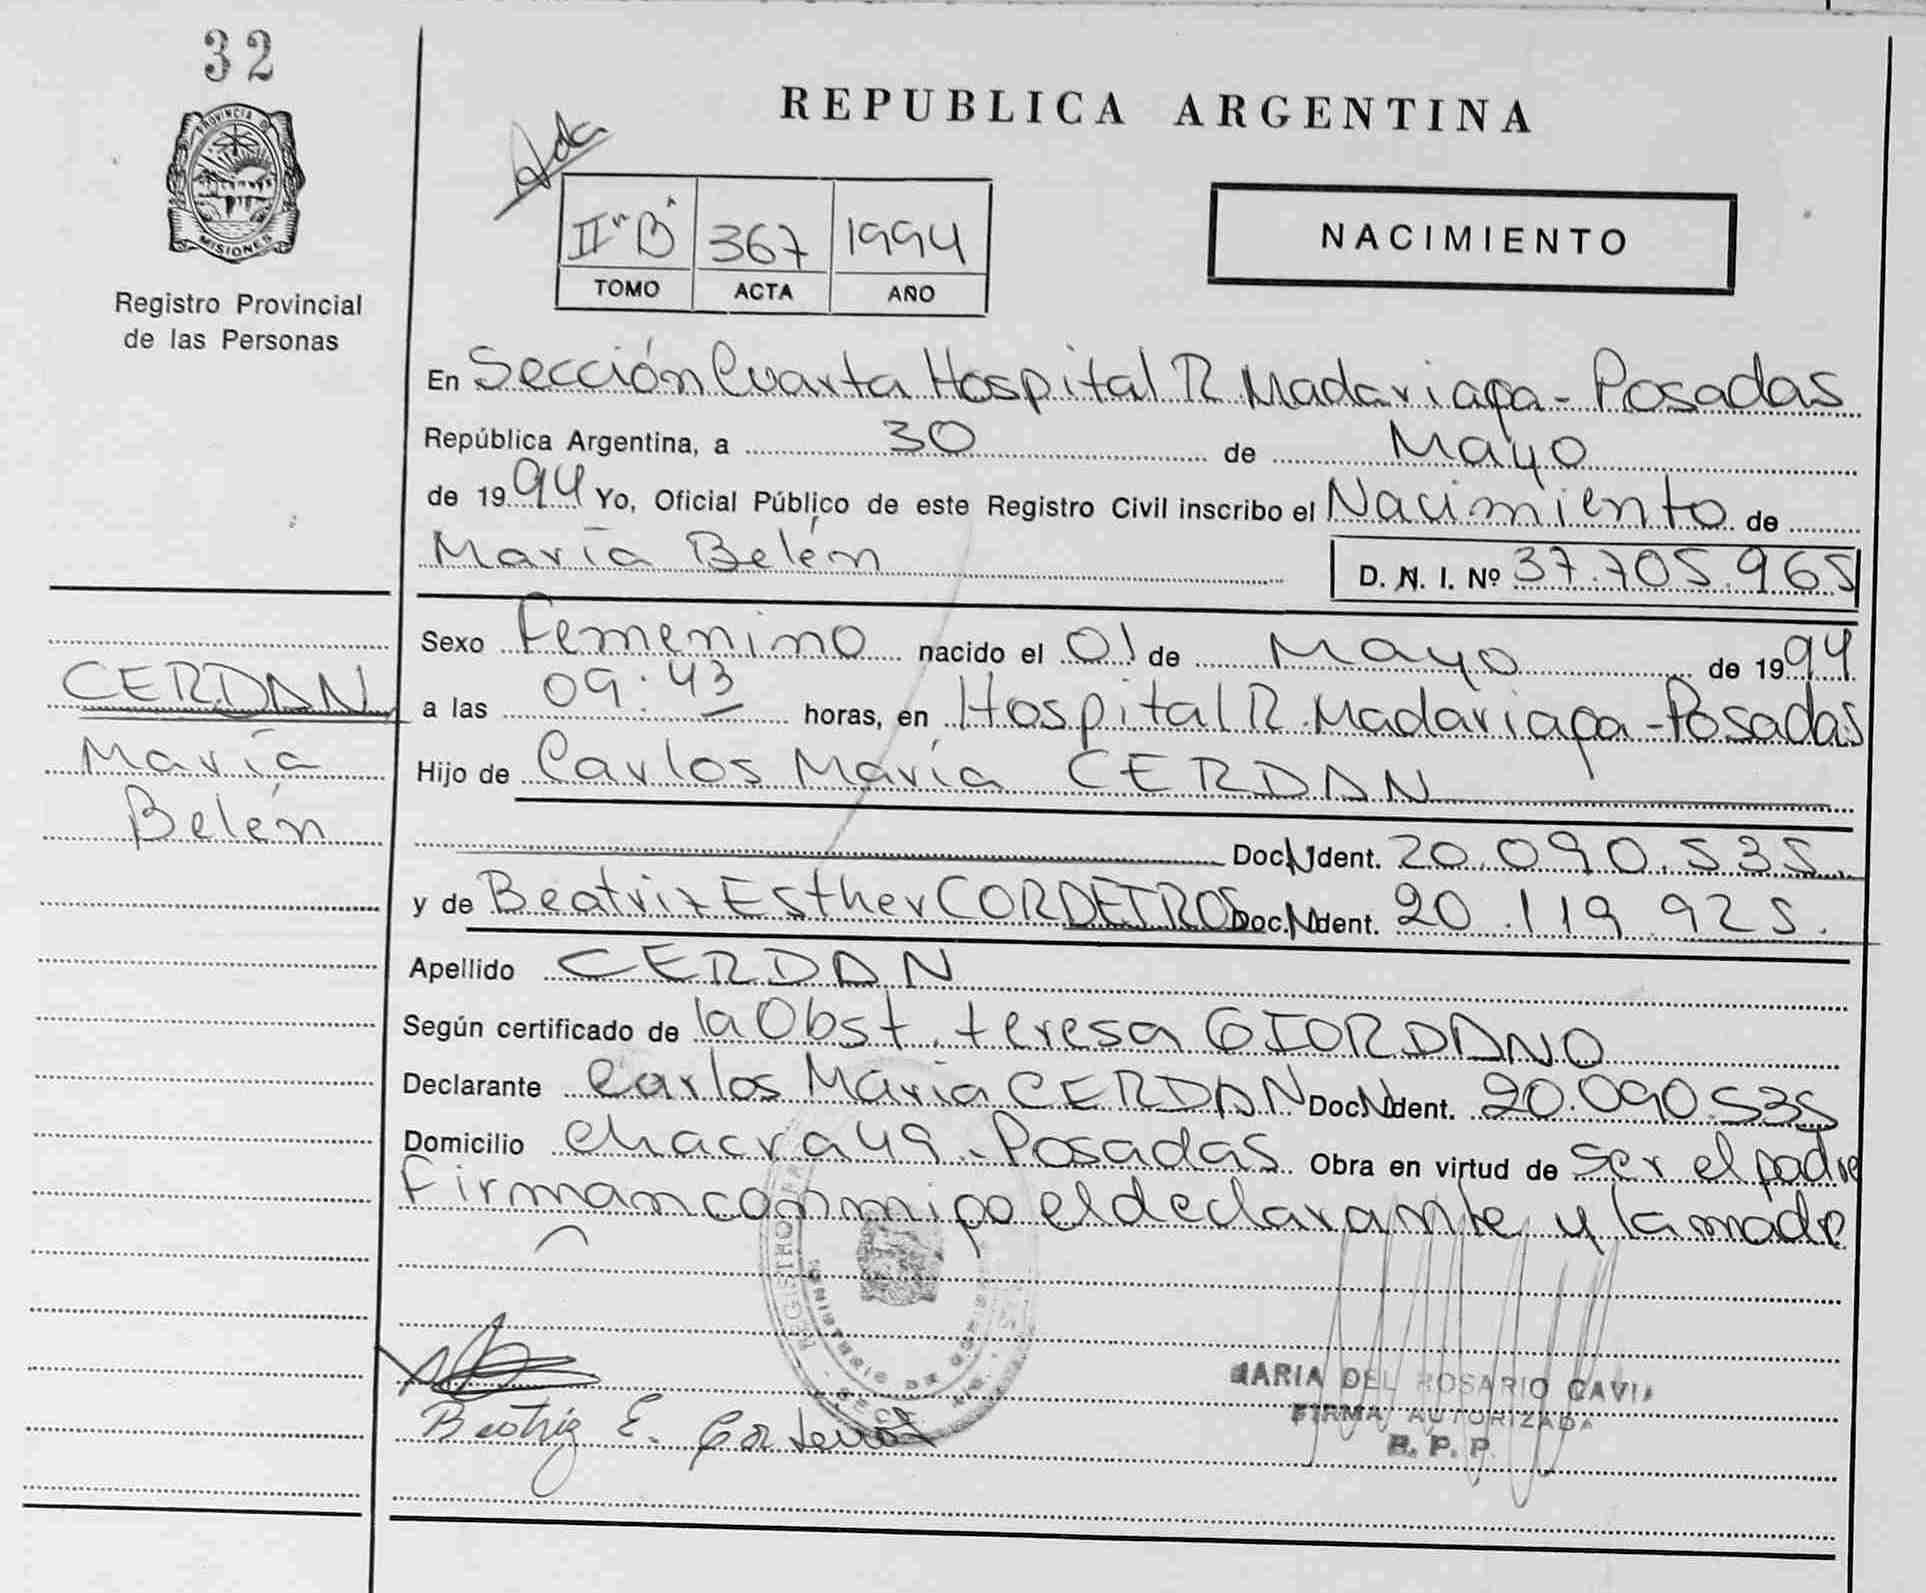 32
PROVINCIA DE
MISIONES
Registro Provincial
de las Personas
REPUBLICA ARGENTINA
II "B" 367 1994
TOMO ACTA AÑO
NACIMIENTO
En Sección Cuarta Hospital R. Madariaga - Posadas
República Argentina, a 30 de Mayo
de 1994 Yo, Oficial Público de este Registro Civil inscribo el Nacimiento de
María Belén D. N. I. Nº 37.705.965
Sexo Femenino nacido el 01 de Mayo de 1994
CERDAN
a las 09:43 horas, en Hospital R. Madariaga - Posadas
María
Hijo de Carlos María CERDAN
Belén
Doc. N Ident. 20.090.535.
y de Beatriz Esther CORDEIROS Doc. N Ident. 20.119.925.
Apellido CERDAN
Según certificado de la Obst. teresa GIORDANO
Declarante Carlos María CERDAN Doc. N Ident. 20.090.535
Domicilio chacra 49 - Posadas Obra en virtud de ser el padre
Firman conmigo el declarante y la madre
MARIA DEL ROSARIO
FIRMA AUTORIZADA
R. P. P.
Beatriz E.